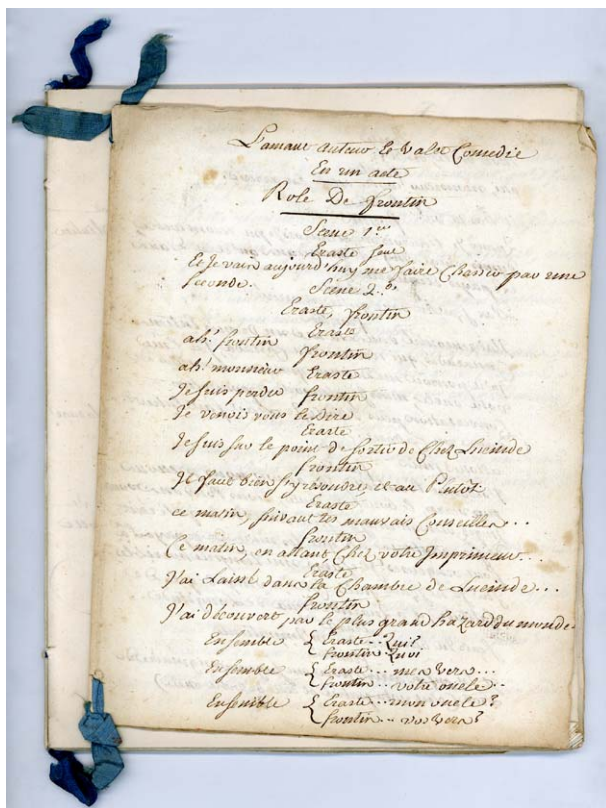 L'amant auteur & valet Comedie
En un acte
Role De frontin
Scene 1ere
Eraste seul
Et je vais aujourd'huy me faire Chasser par une
seconde.
Scene 2de
Eraste, frontin
Eraste
ah! frontin
frontin
ah! monsieur
Eraste
Je suis perdu
frontin
Je venois vous le dire
Eraste
Je suis sur le point de sortir de Chez Lucinde
frontin
Il faut bien s'y resoudre, et au Plutôt
Eraste
ce matin, suivant tes mauvais Conseilles...
frontin
Ce matin, en allant Chez votre Imprimeur...
Eraste
J'ai Laissé dans la Chambre de Lucinde...
frontin
J'ai découvert par le plus grand hazard du monde
Ensemble { Eraste... Quil
frontin Quoi
Ensemble { Eraste... mes vers...
frontin... votre oncle...
Ensemble { Eraste... mon oncle?
frontin... vos vers?